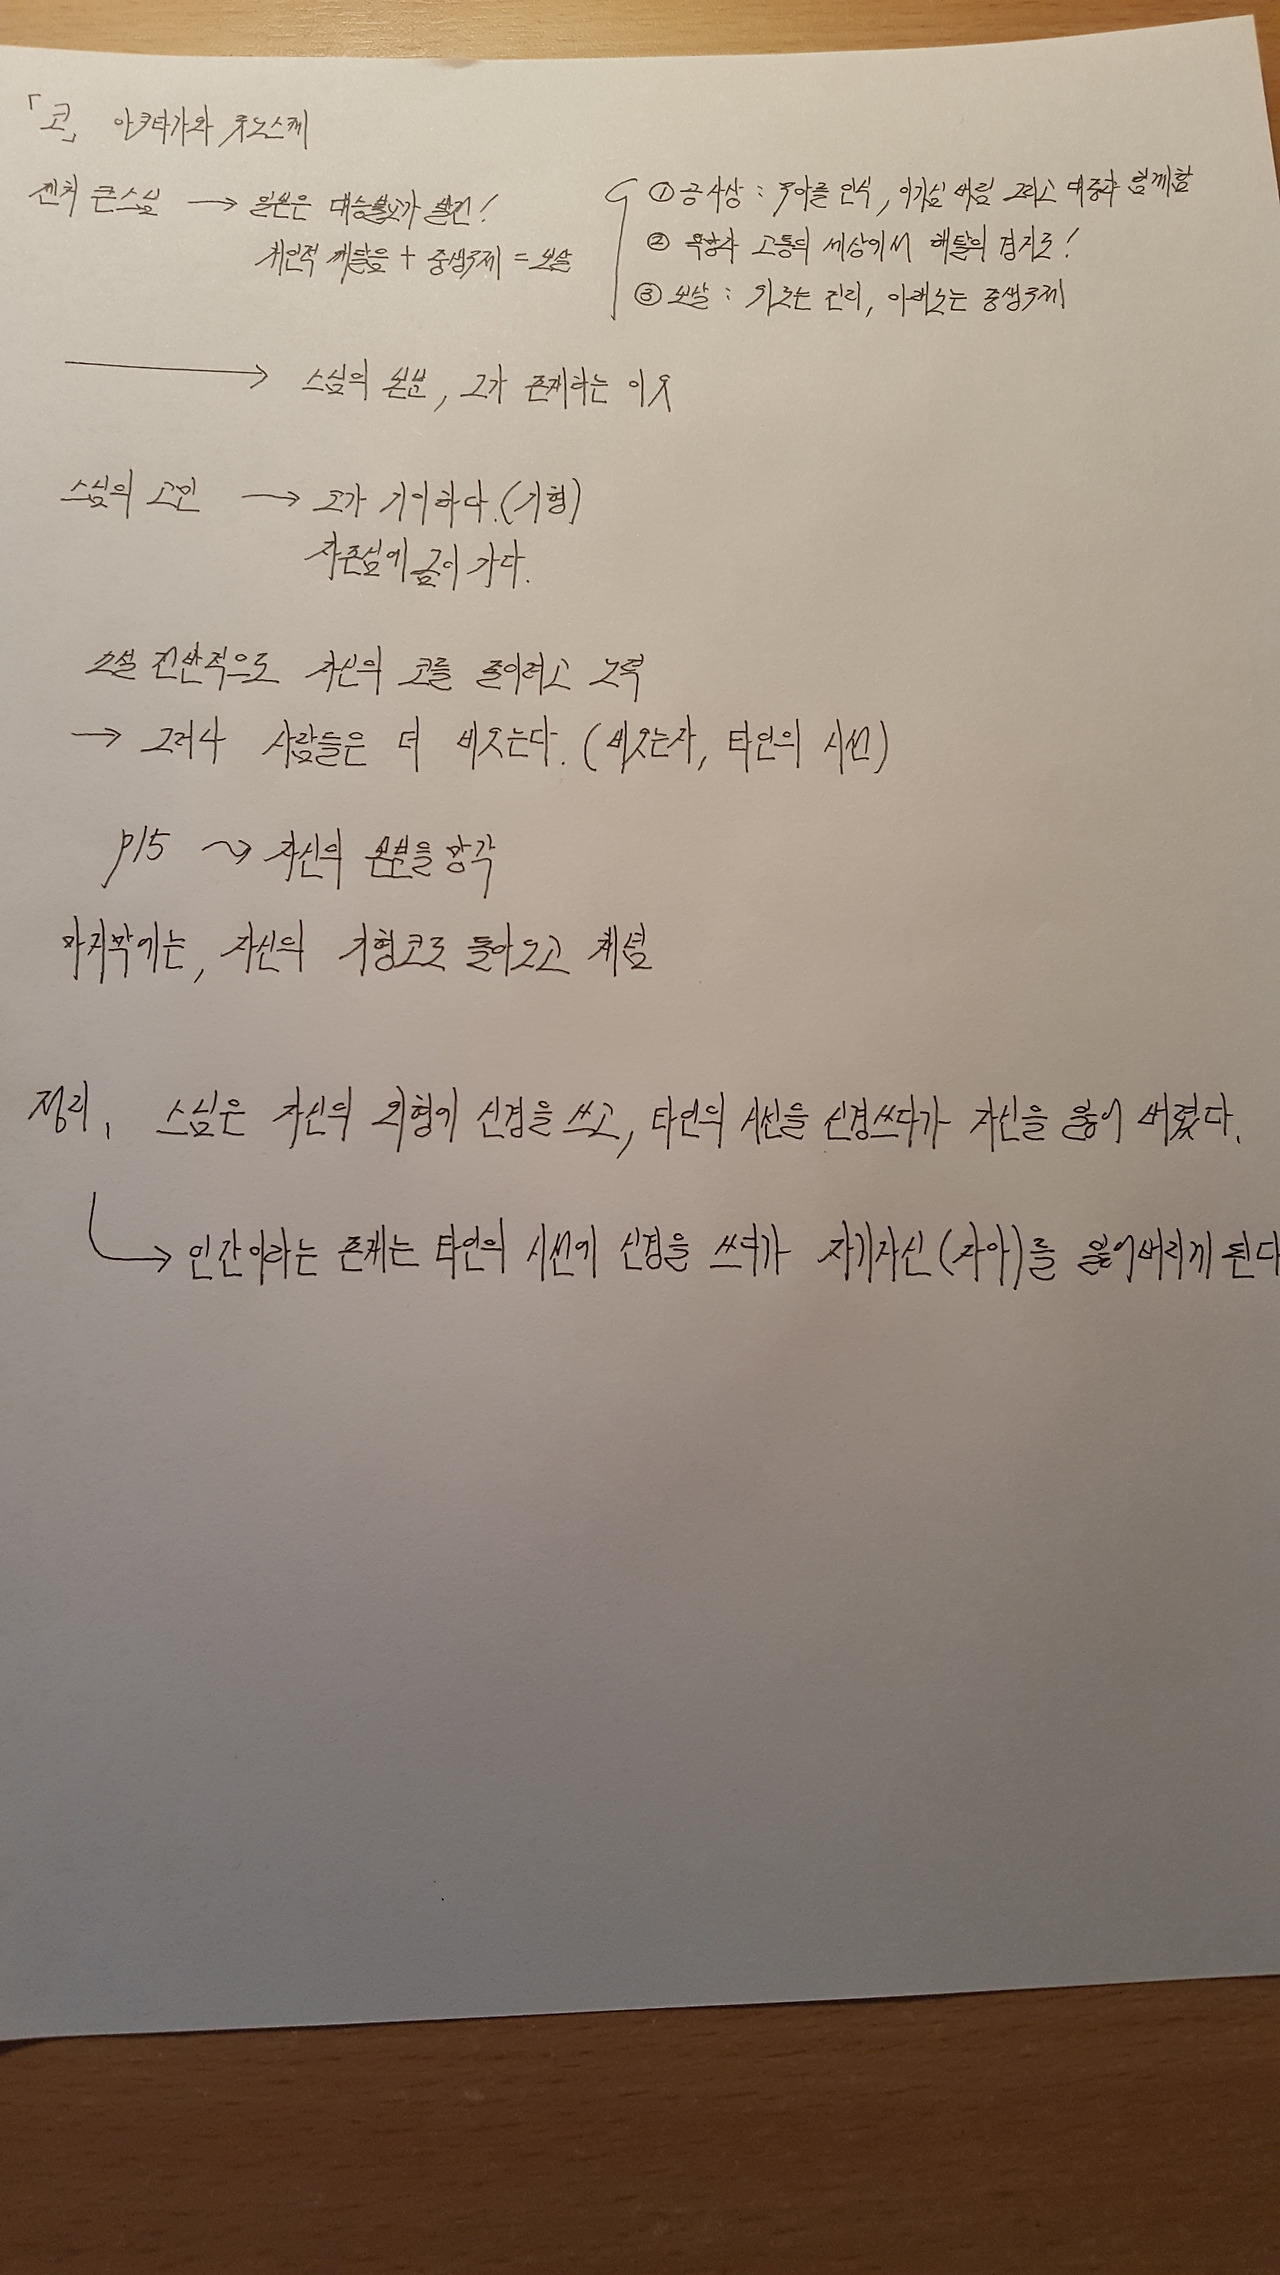 「코」 아쿠타가와 류노스케
젠치 큰스님 → 일본은 대승불교가 발전!
개인적 깨달음 + 중생구제 = 보살
① 공사상 : 무아를 인식, 이기심 버림 그리고 대중과 함께함
② 욕망과 고통의 세상에서 해탈의 경지로!
③ 보살 : 위로는 진리, 아래로는 중생구제
→ 스님의 본분, 그가 존재하는 이유
스님의 고민 → 코가 기이하다.(기형)
자존심에 금이 가다.
소설 전반적으로 자신의 코를 줄이려고 노력
→ 그러나 사람들은 더 비웃는다. (비웃는자, 타인의 시선)
p15 ⤳ 자신의 본분을 망각
마지막에는, 자신의 기형코로 돌아오고 체념
정리, 스님은 자신의 외형에 신경을 쓰고, 타인의 시선을 신경쓰다가 자신을 잃어 버렸다.
↳ 인간이라는 존재는 타인의 시선에 신경을 쓰다가 자기자신(자아)를 잃어버리게 된다